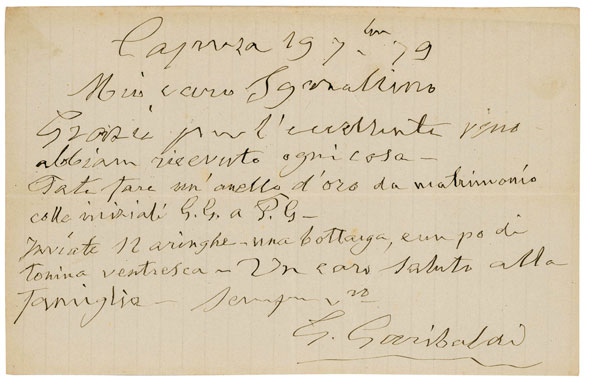 Caprera 19 7bre 79
Mio caro Sgarallino
Grazie per l'eccellente vino
abbiam ricevuto ogni cosa -
Fate fare un'anello d'oro da matrimonio
colle iniziali G.G. a F.G -
Inviate 12 aringhe - una bottarga, e un po di
tonina ventresca - Un caro saluto alla
famiglia - sempre vro
G. Garibaldi